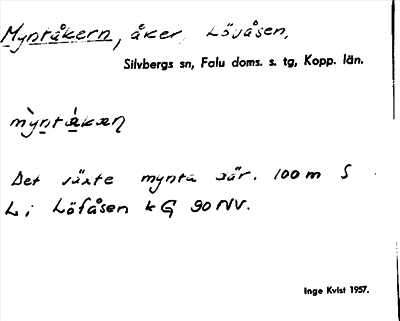 Myntåkern, åker, Lövåsen,
Silvbergs sn, Falu doms. s. tg, Kopp. län.
mỳntákæɳ
Det växte mynta där. 100 m S
L i Löfåsen k G 90 NV.
Inge Kvist 1957.